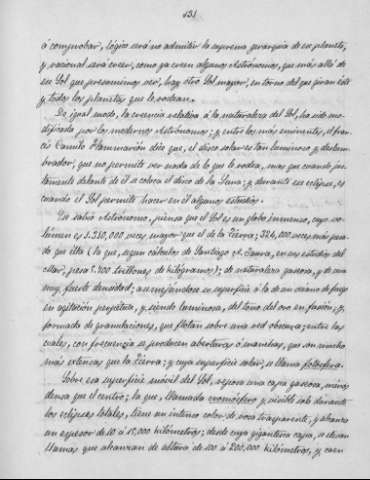 131
á comprobar, lógico será no admitir la suprema gerarquía de ese planeta,
y racional será creer, como ya creen algunos Astrónomos, que más allá de
ese Sol que presumimos ver, hay otro Sol mayor, en torno del que giran éste
y todos los planetas que le rodean.
De igual modo, la creencia relativa á la naturaleza del Sol, ha sido mo-
dificada por los modernos Astrónomos; y entre los más eminentes, el fran-
cés Camilo Flammarión dice que, el disco solar es tan luminoso y deslum-
brador, que no permite ver nada de lo que le rodea, mas que cuando jus-
tamente delante de él se coloca el disco de la Luna; y durante ese eclipse, es
cuando el Sol permite hacer en él algunos estudios.
Ese sabio Astrónomo, piensa que el Sol es un globo inmenso, cuyo vo-
lúmen es 1.280,000 veces mayor que el de la Tierra; 324,000 veces más pesa-
do que ésta (la que, segun cálculos de Santiago A. Saura, en sus estudios del
Mar, pesa trillones de kilógramos); de naturaleza gaseosa, y de una
muy fuerte densidad; asemejándose su superficie á la de un océano de fuego
en agitación perpétua, y siendo luminosa, del tono del oro en fusión; y
formada de granulaciones, que flotan sobre una red obscura; entre las
cuales, con frecuencia se producen aberturas ó manchas, que son mucho
más extensas que la Tierra; y cuya superficie solar, se llama fotosfera.
Sobre esa superficie móvil del Sol, reposa una capa gaseosa, menos
densa que el centro; la que, llamada cromósfero y visible solo durante
los eclipses totales, tiene un intenso color de rosa trasparente, y alcanza
un espesor de 10 á 15,000 kilómetros; desde cuya gigantesca capa, se elevan
llamas que alcanzan de altura de 100 á 200,000 kilómetros, y caen